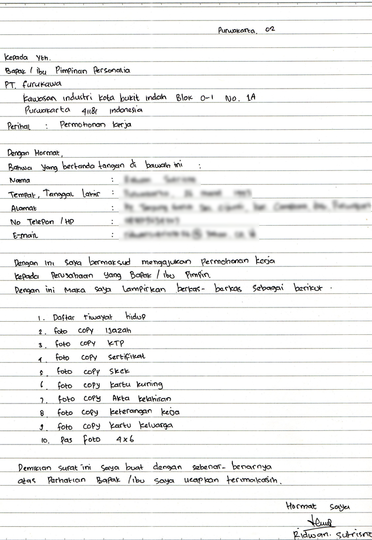 Purwakarta, 02
Kepada Yth.
Bapak / Ibu Pimpinan Personalia
PT. Furukawa
Kawasan Industri Kota Bukit Indah Blok O-1 No. 1A
Purwakarta 41181 Indonesia
Perihal : Permohonan kerja
Dengan Hormat,
Bahwa yang bertanda tangan di bawah ini :
Nama :
Tempat, Tanggal Lahir :
Alamat :
No Telepon / HP :
E-mail :
Dengan ini saya bermaksud mengajukan Permohonan kerja
kepada Perusahaan yang Bapak / Ibu Pimpin.
Dengan ini Maka saya Lampirkan berkas-barkas sebagai berikut.
1. Daftar riwayat hidup
2. foto copy Ijazah
3. foto copy KTP
4. foto copy sertifikat
5. foto copy SKCK
6. foto copy kartu kuning
7. foto copy Akta kelahiran
8. foto copy keterangan kerja
9. foto copy kartu keluarga
10. Pas foto 4x6
Demikian surat ini saya buat dengan sebenar-benarnya
atas Perhatian Bapak / Ibu saya ucapkan terimakasih.
Hormat saya
Ridwan Sutrisno